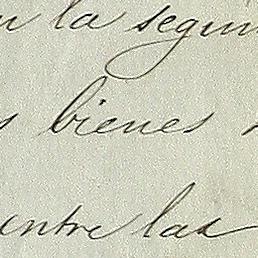 la segun
bienes
entre las